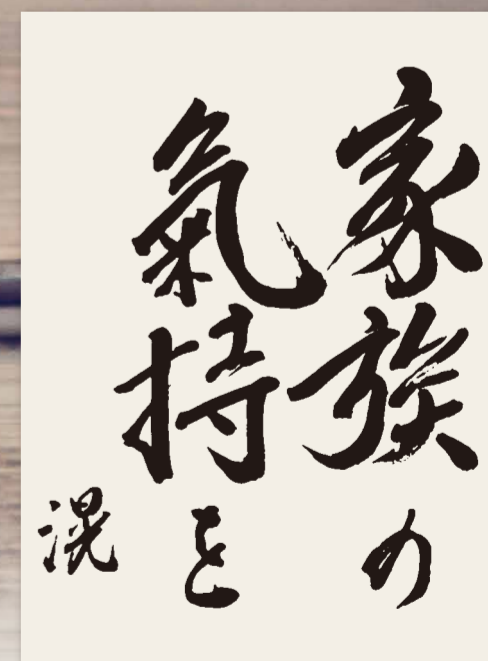 家族の
氣持を
滉